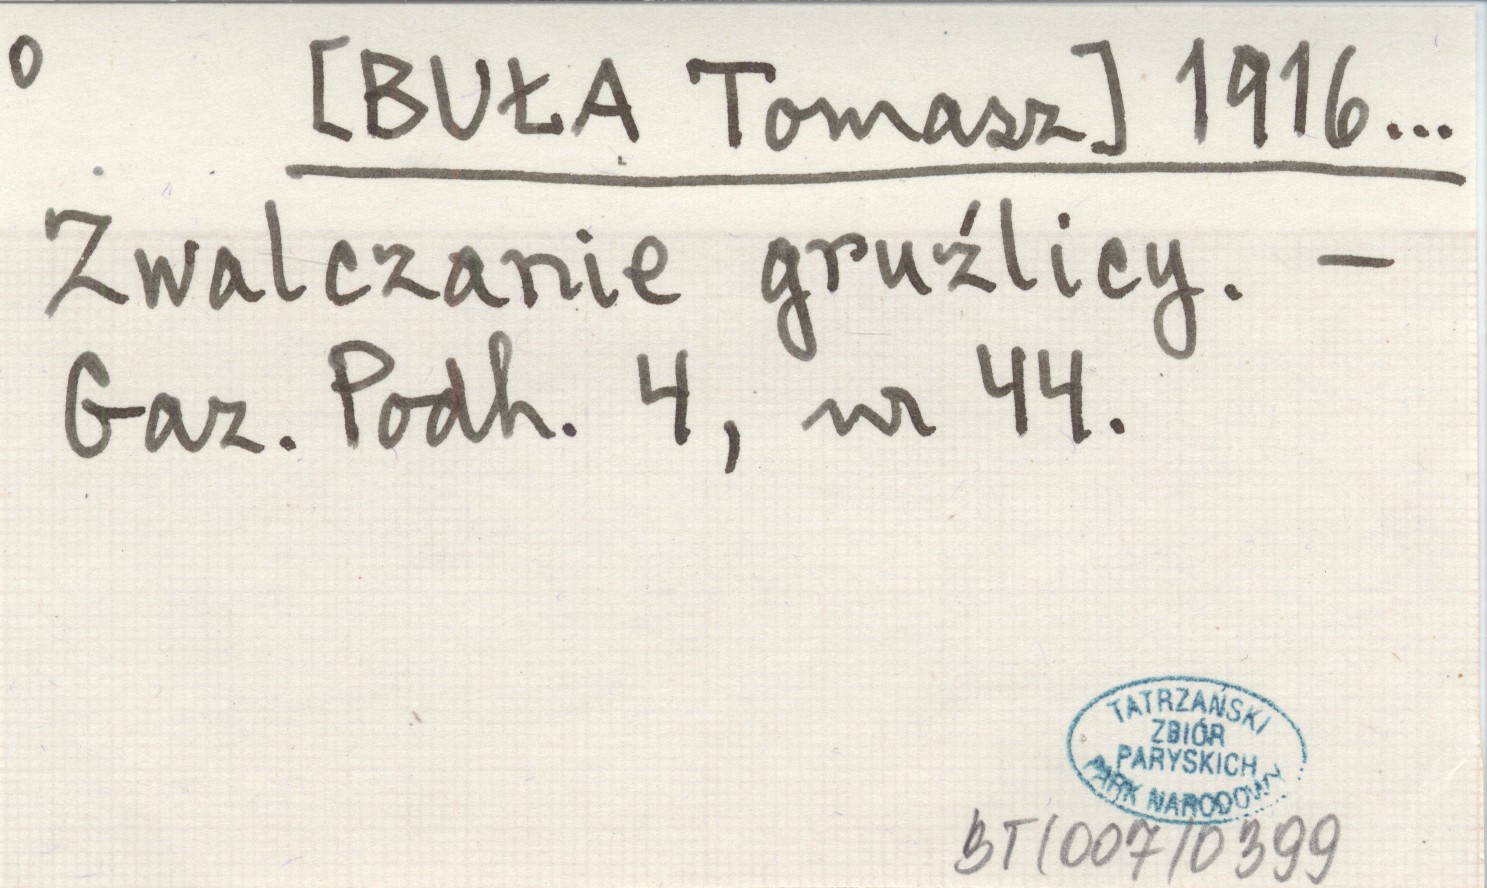 o [BUŁA Tomasz] 1916...
Zwalczanie gruźlicy. —
Gaz. Podh. 4, nr 44.
TATRZAŃSKI
ZBIÓR
PARYSKICH
PARK NARODOWY
BT/007/0399